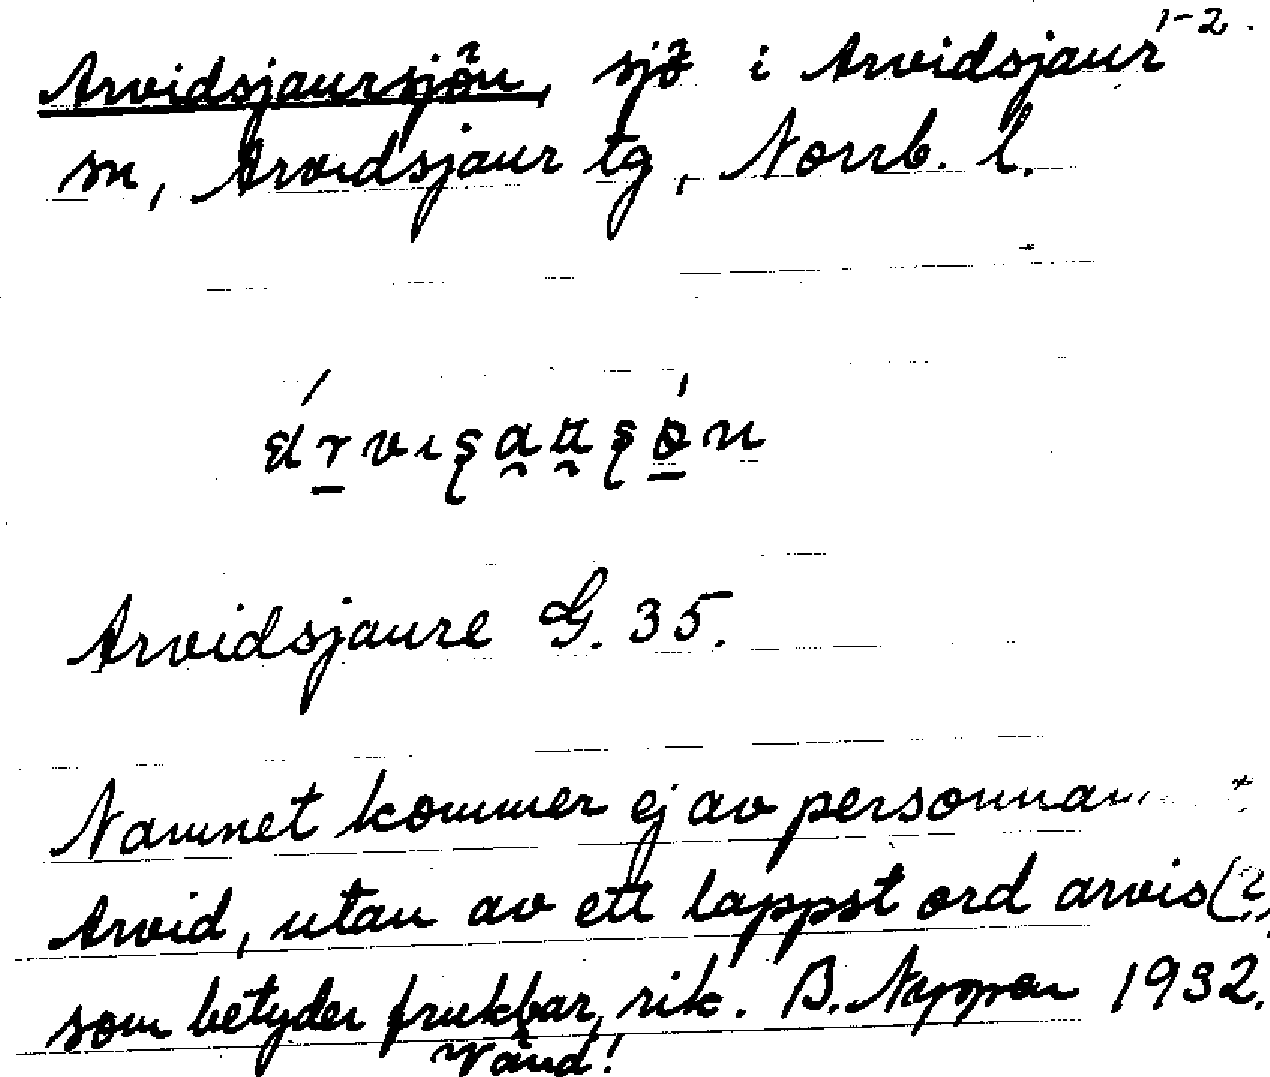 Arvidsjaursjön, sjö i Arvidsjaur 1-2.
sn, Arvidsjaur tg, Norrb. l.
Arvidsjaure G. 35.
Namnet kommer ej av personnamnet
Arvid, utan av ett lappst ord arvis (?)
som betyder fruktbar, rik. B. 1932.
Vänd!